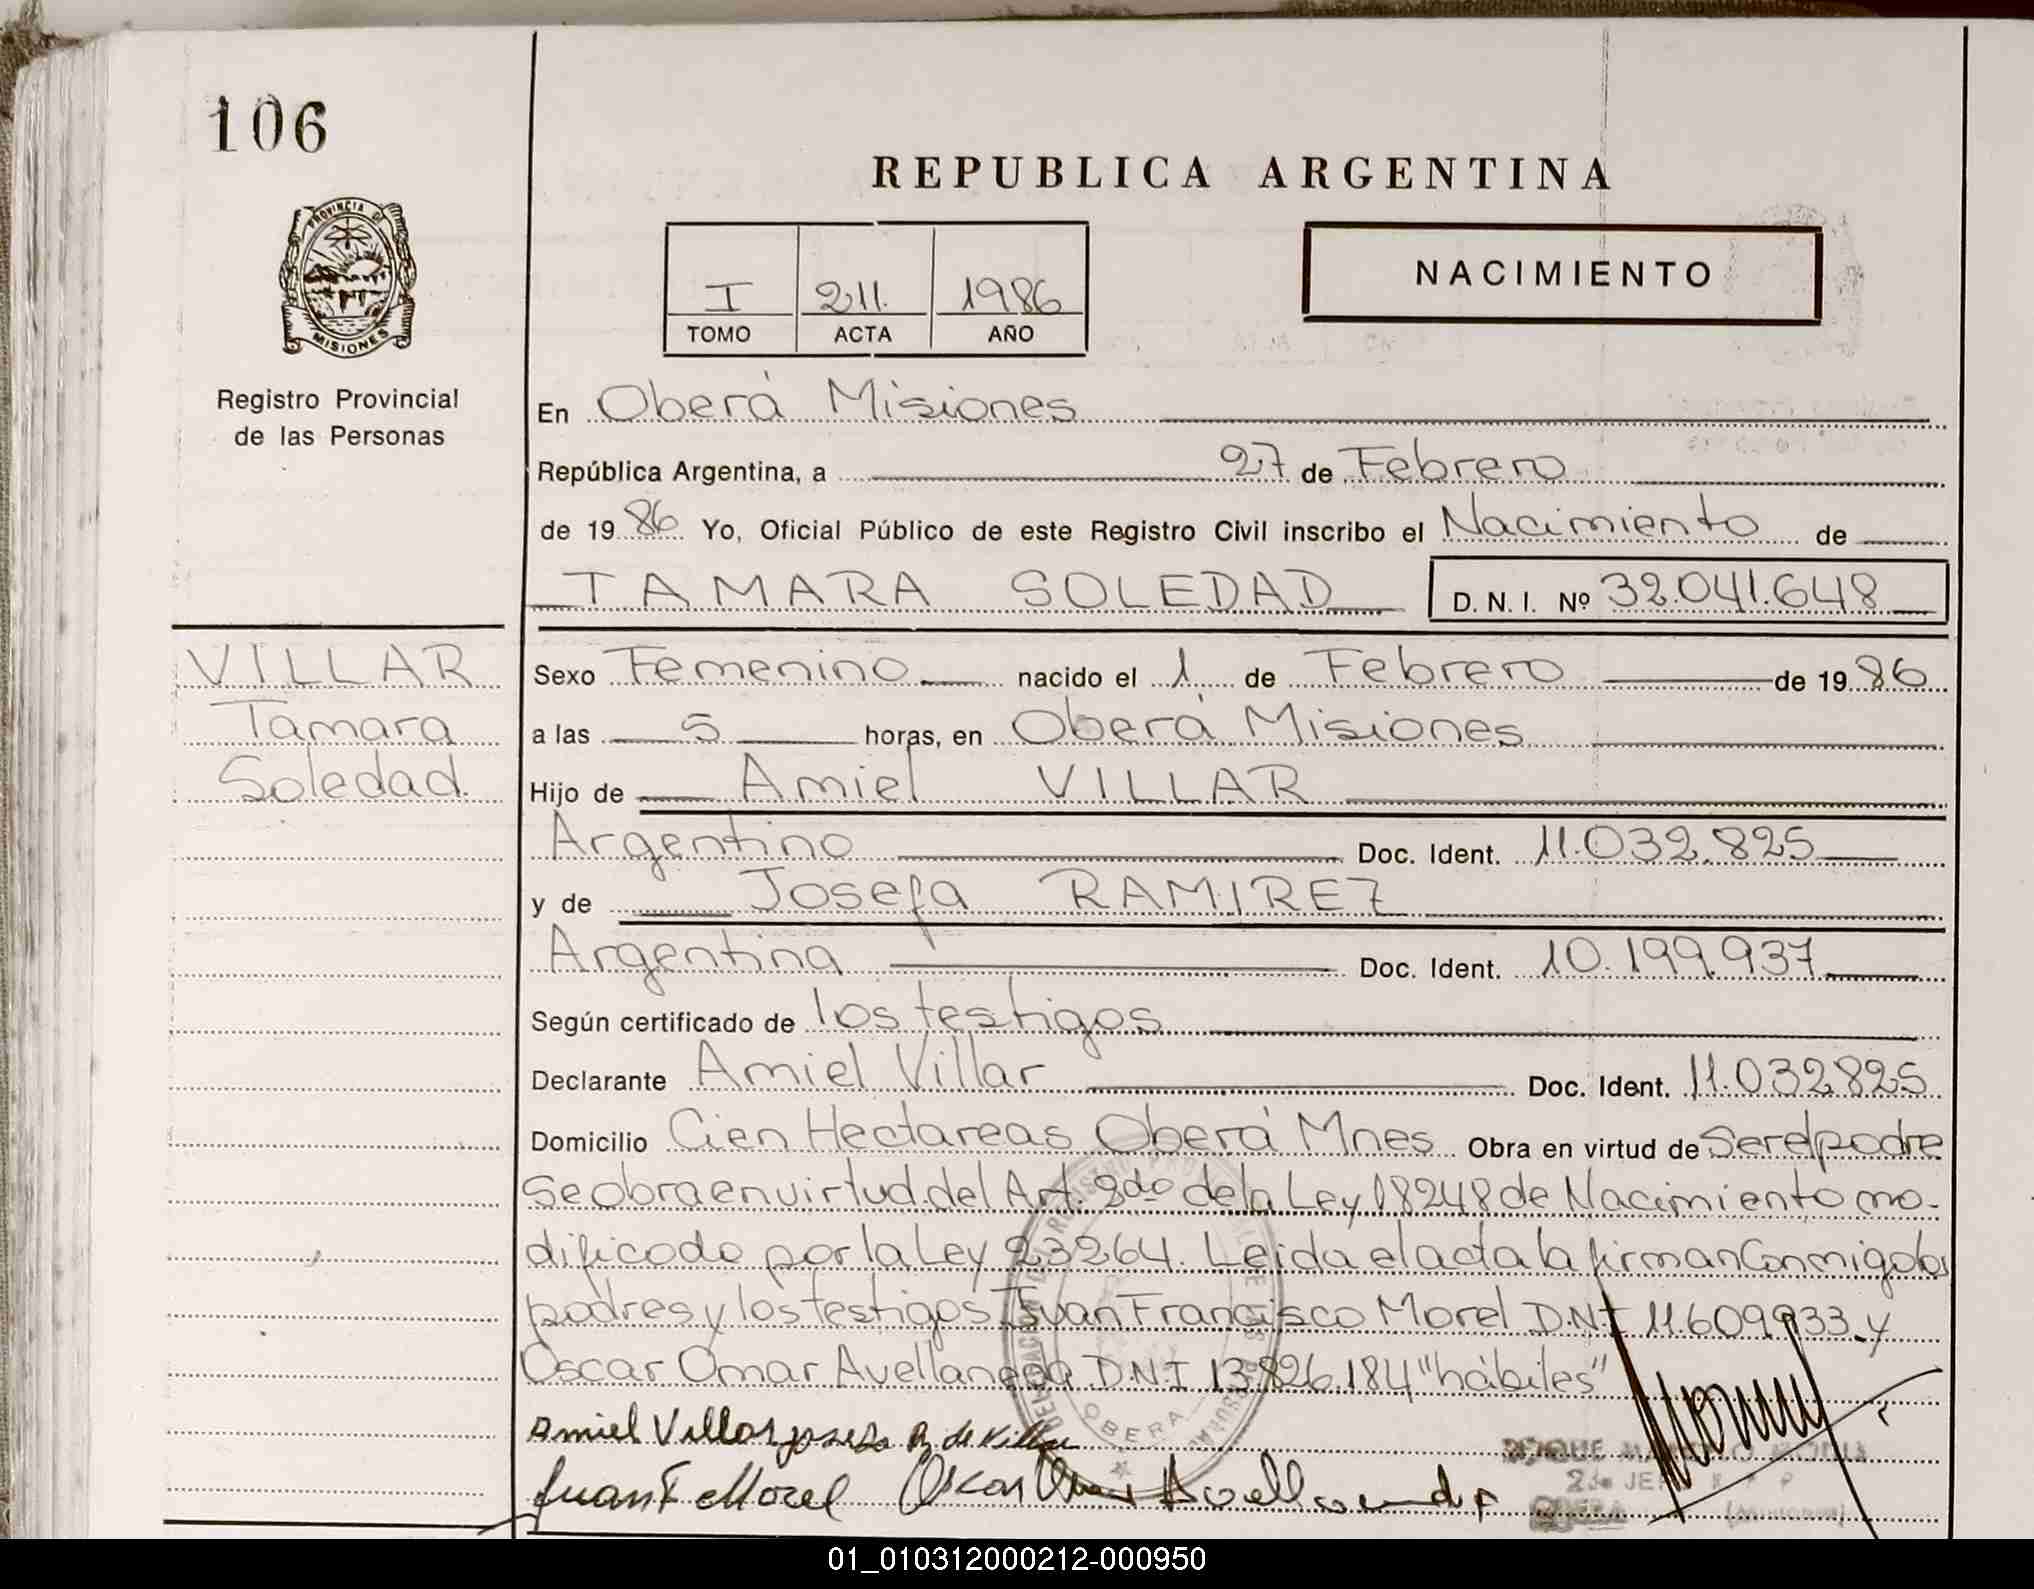 106
REPUBLICA ARGENTINA
PROVINCIA DE
MISIONES
I 211. 1986
TOMO ACTA AÑO
NACIMIENTO
Registro Provincial
de las Personas
En Oberá Misiones
República Argentina, a 27 de Febrero
de 19 86 Yo, Oficial Público de este Registro Civil inscribo el Nacimiento de
TAMARA SOLEDAD D. N. I. Nº 32.041.648
VILLAR
Tamara
Soledad.
Sexo Femenino nacido el 1 de Febrero de 19 86
a las 5 horas, en Oberá Misiones
Hijo de Amiel VILLAR
Argentino Doc. Ident. 11.032.825
y de Josefa RAMIREZ
Argentina Doc. Ident. 10.199.937
Según certificado de los testigos
Declarante Amiel Villar Doc. Ident. 11.032825
Domicilio Cien Hectareas Oberá Mnes Obra en virtud de Ser el padre
Se obra en virtud del Art. 2do de la Ley 18248 de Nacimiento mo-
dificado por la Ley 23264. Leida el acta la firman Conmigo los
padres y los testigos Juan Francisco Morel D.N.I 11.609933 y
Oscar Omar Avellaneda D.N.I 13.826.184 "hábiles"
Amiel Villar Josefa R. de Villar
Juan F Morel Oscar Omar Avellaneda
OBERA
2do JEFE
OBERA (Misiones)
01_010312000212-000950